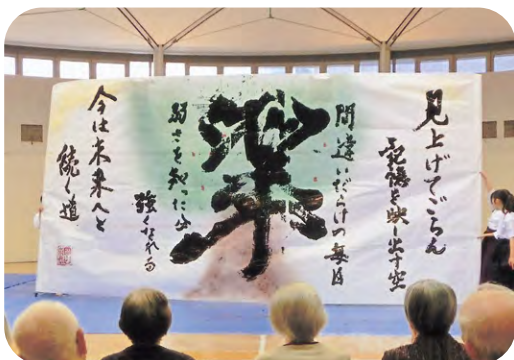 見上げてごらん
記憶を映し出す空
間違いだらけの毎日
弱さを知った分
強くなれる
今は未来へと
続く道